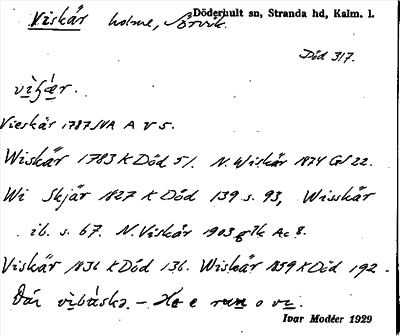 Viskär holme, Sörvik. Döderhult sn, Stranda hd, Kalm. l.
Död 317.
Vieskär 1787 JVA A V 5.
Wiskär 1783 K Död 51. N. Wiskär 1874 Gl 22.
Wi Skjär 1827 K Död 139 s. 93, Wisskär
ib. s. 67. N. Viskär 1903 Ac 8.
Viskär 1836 K Död 136. Wiskär 1859 K Död 192.
Där
Ivar Modéer 1929